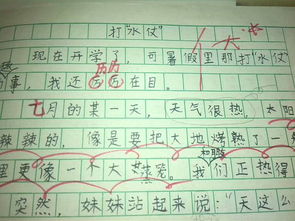 打"水仗"
现在开学了，可暑假里那打"水仗"
的事，我还历历在目。
七月的某一天，天气很热，太阳
辣辣的，像是要把大地烤熟了一
里更像一个大蒸笼。我们正热得
突然，妹妹站起来说："天这么